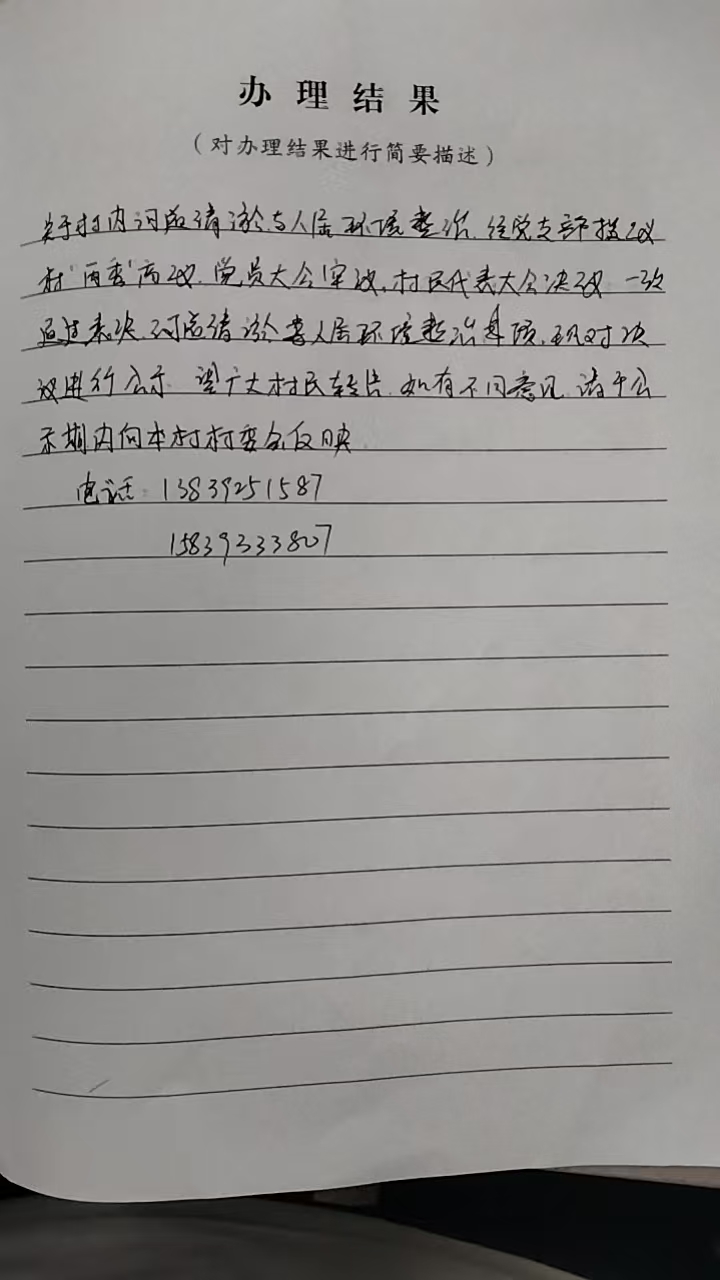 办理结果
（对办理结果进行简要描述）
关于村内河底清淤与人居环境整治，经党支部提议
村"两委"商议，党员大会审议，村民代表大会决议，一致
通过表决，河底清淤 人居环境整治事项，现对决
议进行公示 望广大村民转告，如有不同意见，请于公
示期内向本村村委会反映
电话：13839251587
15839333807